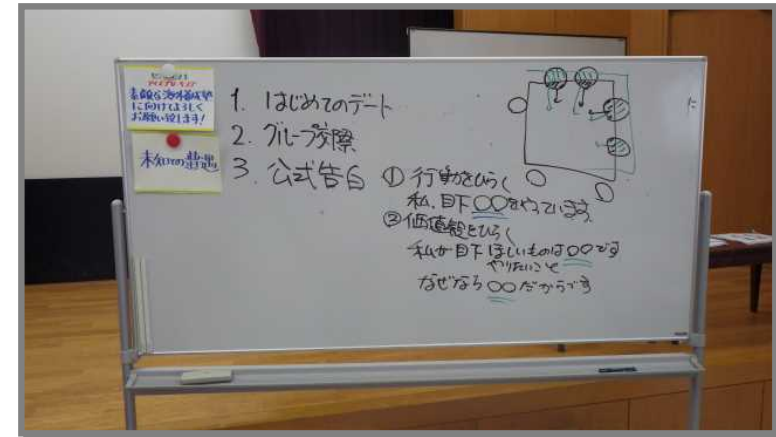 素敵な海士養成塾
に向けてよろしく
お願い致します!
未知との遭遇
1. はじめてのデート
2. グループ交際
3. 公式告白
① 行動をひらく
私、目下〇〇をやっています
② 価値観をひらく
私が目下ほしいものは〇〇です
やりたいこと
なぜなら〇〇だからです